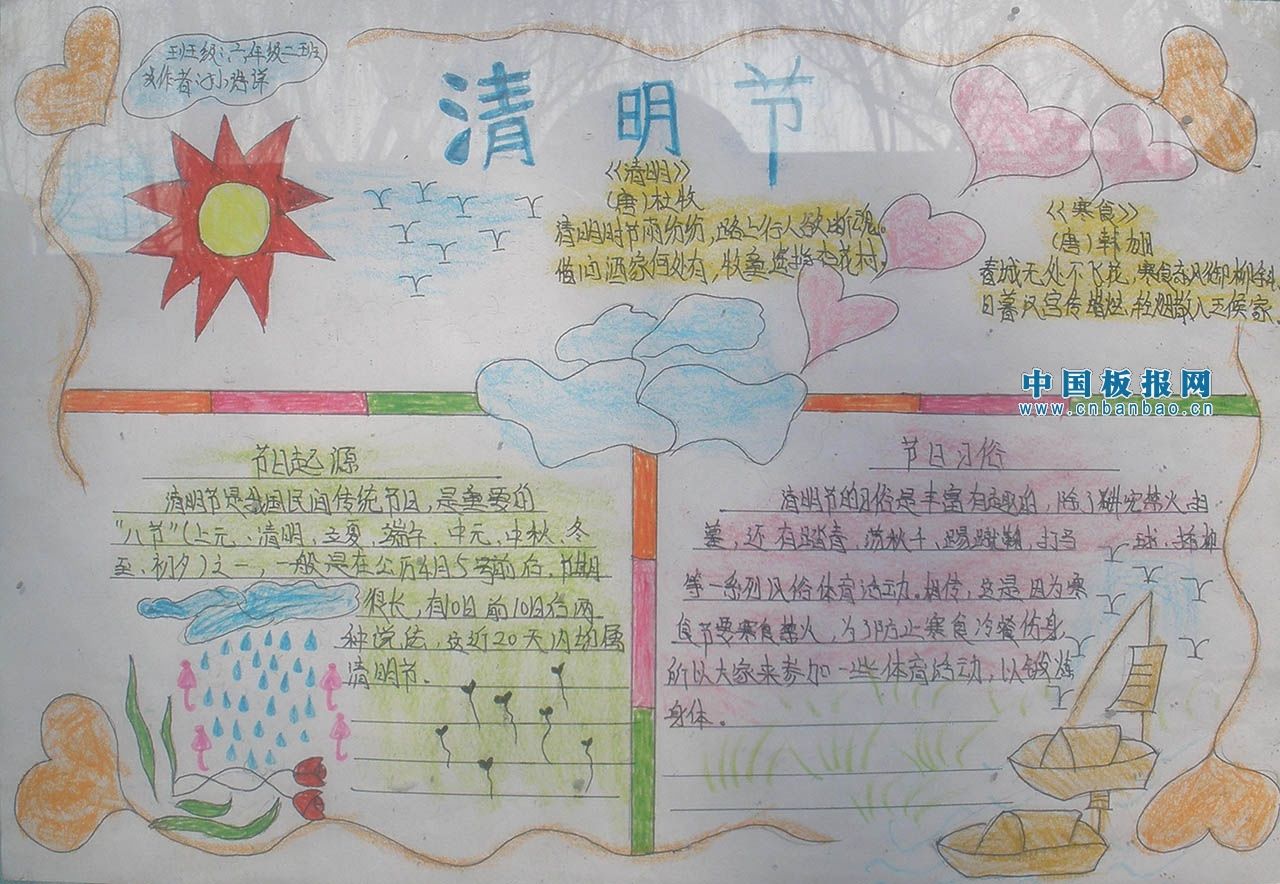 班级:六年级二班
作者:小
清明节
《清明》
(唐)杜牧
清明时节雨纷纷,路上行人欲断魂。
借问酒家何处有,牧童遥指杏花村。
《寒食》
(唐)韩翃
春城无处不飞花,寒食东风御柳斜
日暮汉宫传蜡烛,轻烟散入五候家.
中国板报网
www.cnbanbao.cn
节日起源
清明节是我国民间传统节日,是重要的
“八节”(上元、清明、立夏、端午、中元、中秋、冬
至、初夕)之一,一般是在公历4月5号前后,节期
很长,有10日前10日后两
种说法,这近20天内均属
清明节.
节日习俗
清明节的习俗是丰富有趣的,除了讲究禁火、扫
墓,还有踏青、荡秋千、踢蹴鞠、打马球、插柳
等一系列风俗体育活动.相传,这是因为寒
食节要寒食禁火,为了防止寒食冷餐伤身,
所以大家来参加一些体育活动,以锻炼
身体。